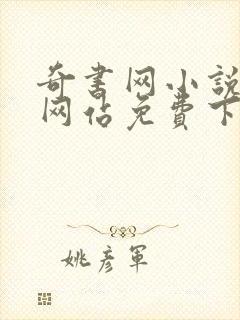 奇書网小説
网佔免費下
姚彦軍